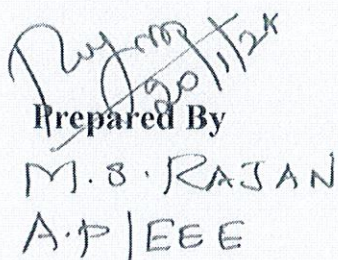 20/1/24
Prepared By
M.S.RAJAN
A.P/EEE